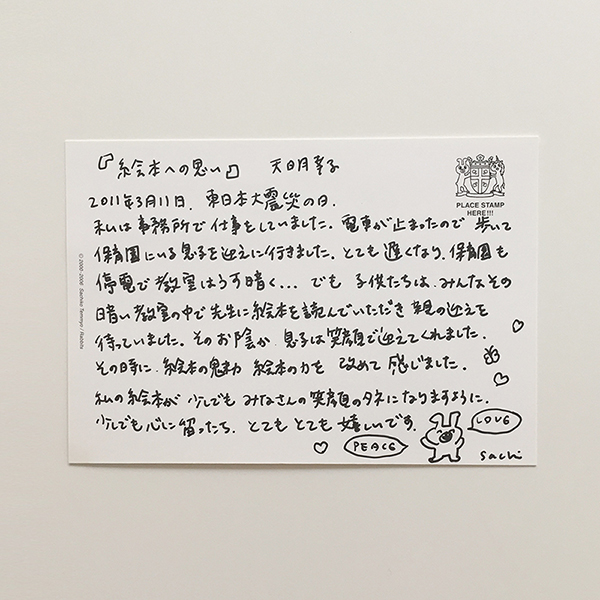 『絵本への思い』 天明幸子
2011年3月11日. 東日本大震災の日.
私は事務所で仕事をしていました. 電車が止まったので 歩いて
保育園にいる息子を迎えに行きました. とても遅くなり. 保育園も
停電で教室はうす暗く... でも 子供たちは. みんなその
暗い教室の中で先生に絵本を読んでいただき 親の迎えを
待っていました. そのお陰か. 息子は笑顔で迎えてくれました.
その時に. 絵本の魅力 絵本の力を 改めて感じました.
私の絵本が 少しでも みなさんの笑顔のタネになりますように.
少しでも心に留ったら. とてもとても 嬉しいです.
PEACE
LOVE
sachi
PLACE STAMP
HERE!!!
© 2000-2006 Sachiko Tenmyo / Rabbits